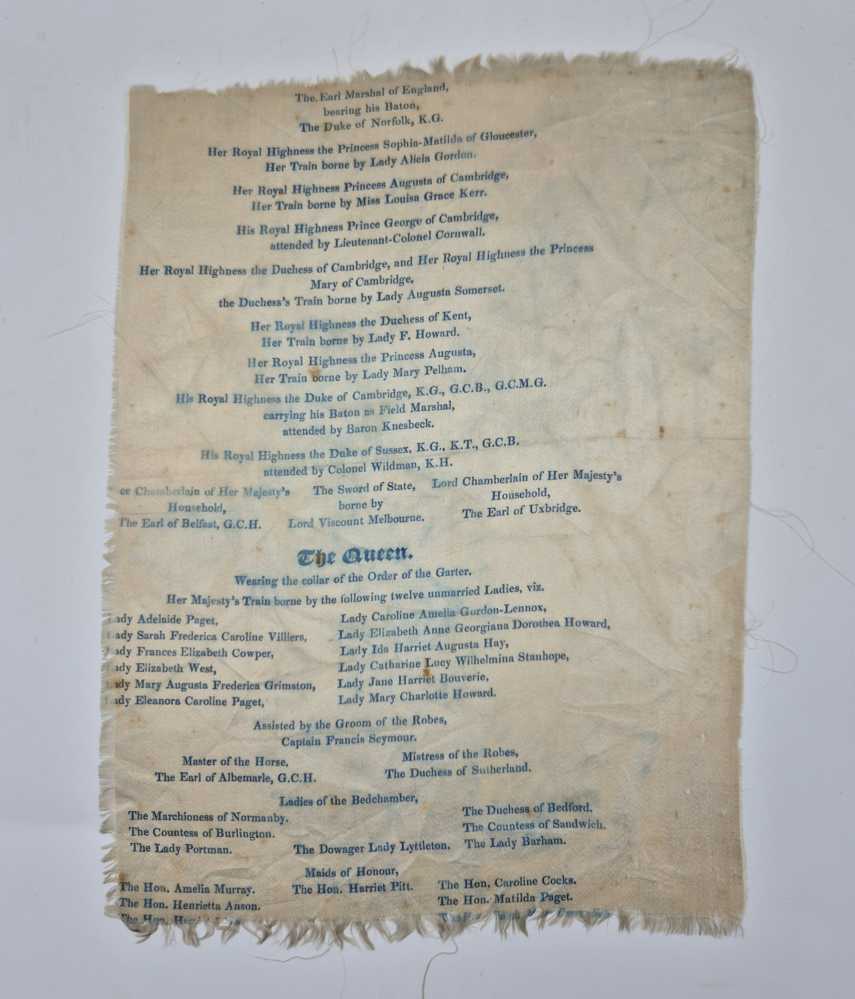 The Earl Marshal of England,
bearing his Baton,
The Duke of Norfolk, K.G.
Her Royal Highness the Princess Sophia-Matilda of Gloucester,
Her Train borne by Lady Alicia Gordon.
Her Royal Highness Princess Augusta of Cambridge,
Her Train borne by Miss Louisa Grace Kerr.
His Royal Highness Prince George of Cambridge,
attended by Lieutenant-Colonel Cornwall.
Her Royal Highness the Duchess of Cambridge, and Her Royal Highness the Princess
Mary of Cambridge,
the Duchess's Train borne by Lady Augusta Somerset.
Her Royal Highness the Duchess of Kent,
Her Train borne by Lady F. Howard.
Her Royal Highness the Princess Augusta,
Her Train borne by Lady Mary Pelham.
His Royal Highness the Duke of Cambridge, K.G., G.C.B., G.C.M.G.
carrying his Baton as Field Marshal,
attended by Baron Knesbeck.
His Royal Highness the Duke of Sussex, K.G., K.T., G.C.B.
attended by Colonel Wildman, K.H.
ce Chamberlain of Her Majesty's
Household,
The Earl of Belfast, G.C.H.
The Sword of State,
borne by
Lord Viscount Melbourne.
Lord Chamberlain of Her Majesty's
Household,
The Earl of Uxbridge.
The Queen.
Wearing the collar of the Order of the Garter.
Her Majesty's Train borne by the following twelve unmarried Ladies, viz.
Lady Adelaide Paget,
Lady Sarah Frederica Caroline Villiers,
Lady Frances Elizabeth Cowper,
Lady Elizabeth West,
Lady Mary Augusta Frederica Grimston,
Lady Eleanora Caroline Paget,
Lady Caroline Amelia Gordon-Lennox,
Lady Elizabeth Anne Georgiana Dorothea Howard,
Lady Ida Harriet Augusta Hay,
Lady Catharine Lucy Wilhelmina Stanhope,
Lady Jane Harriet Bouverie,
Lady Mary Charlotte Howard.
Assisted by the Groom of the Robes,
Captain Francis Seymour.
Master of the Horse,
The Earl of Albemarle, G.C.H.
Mistress of the Robes,
The Duchess of Sutherland.
Ladies of the Bedchamber,
The Marchioness of Normanby.
The Countess of Burlington.
The Lady Portman.
The Dowager Lady Lyttleton.
The Duchess of Bedford.
The Countess of Sandwich.
The Lady Barham.
Maids of Honour,
The Hon. Amelia Murray.
The Hon. Henrietta Anson.
The Hon.
The Hon. Harriet Pitt.
The Hon. Caroline Cocks.
The Hon. Matilda Paget.